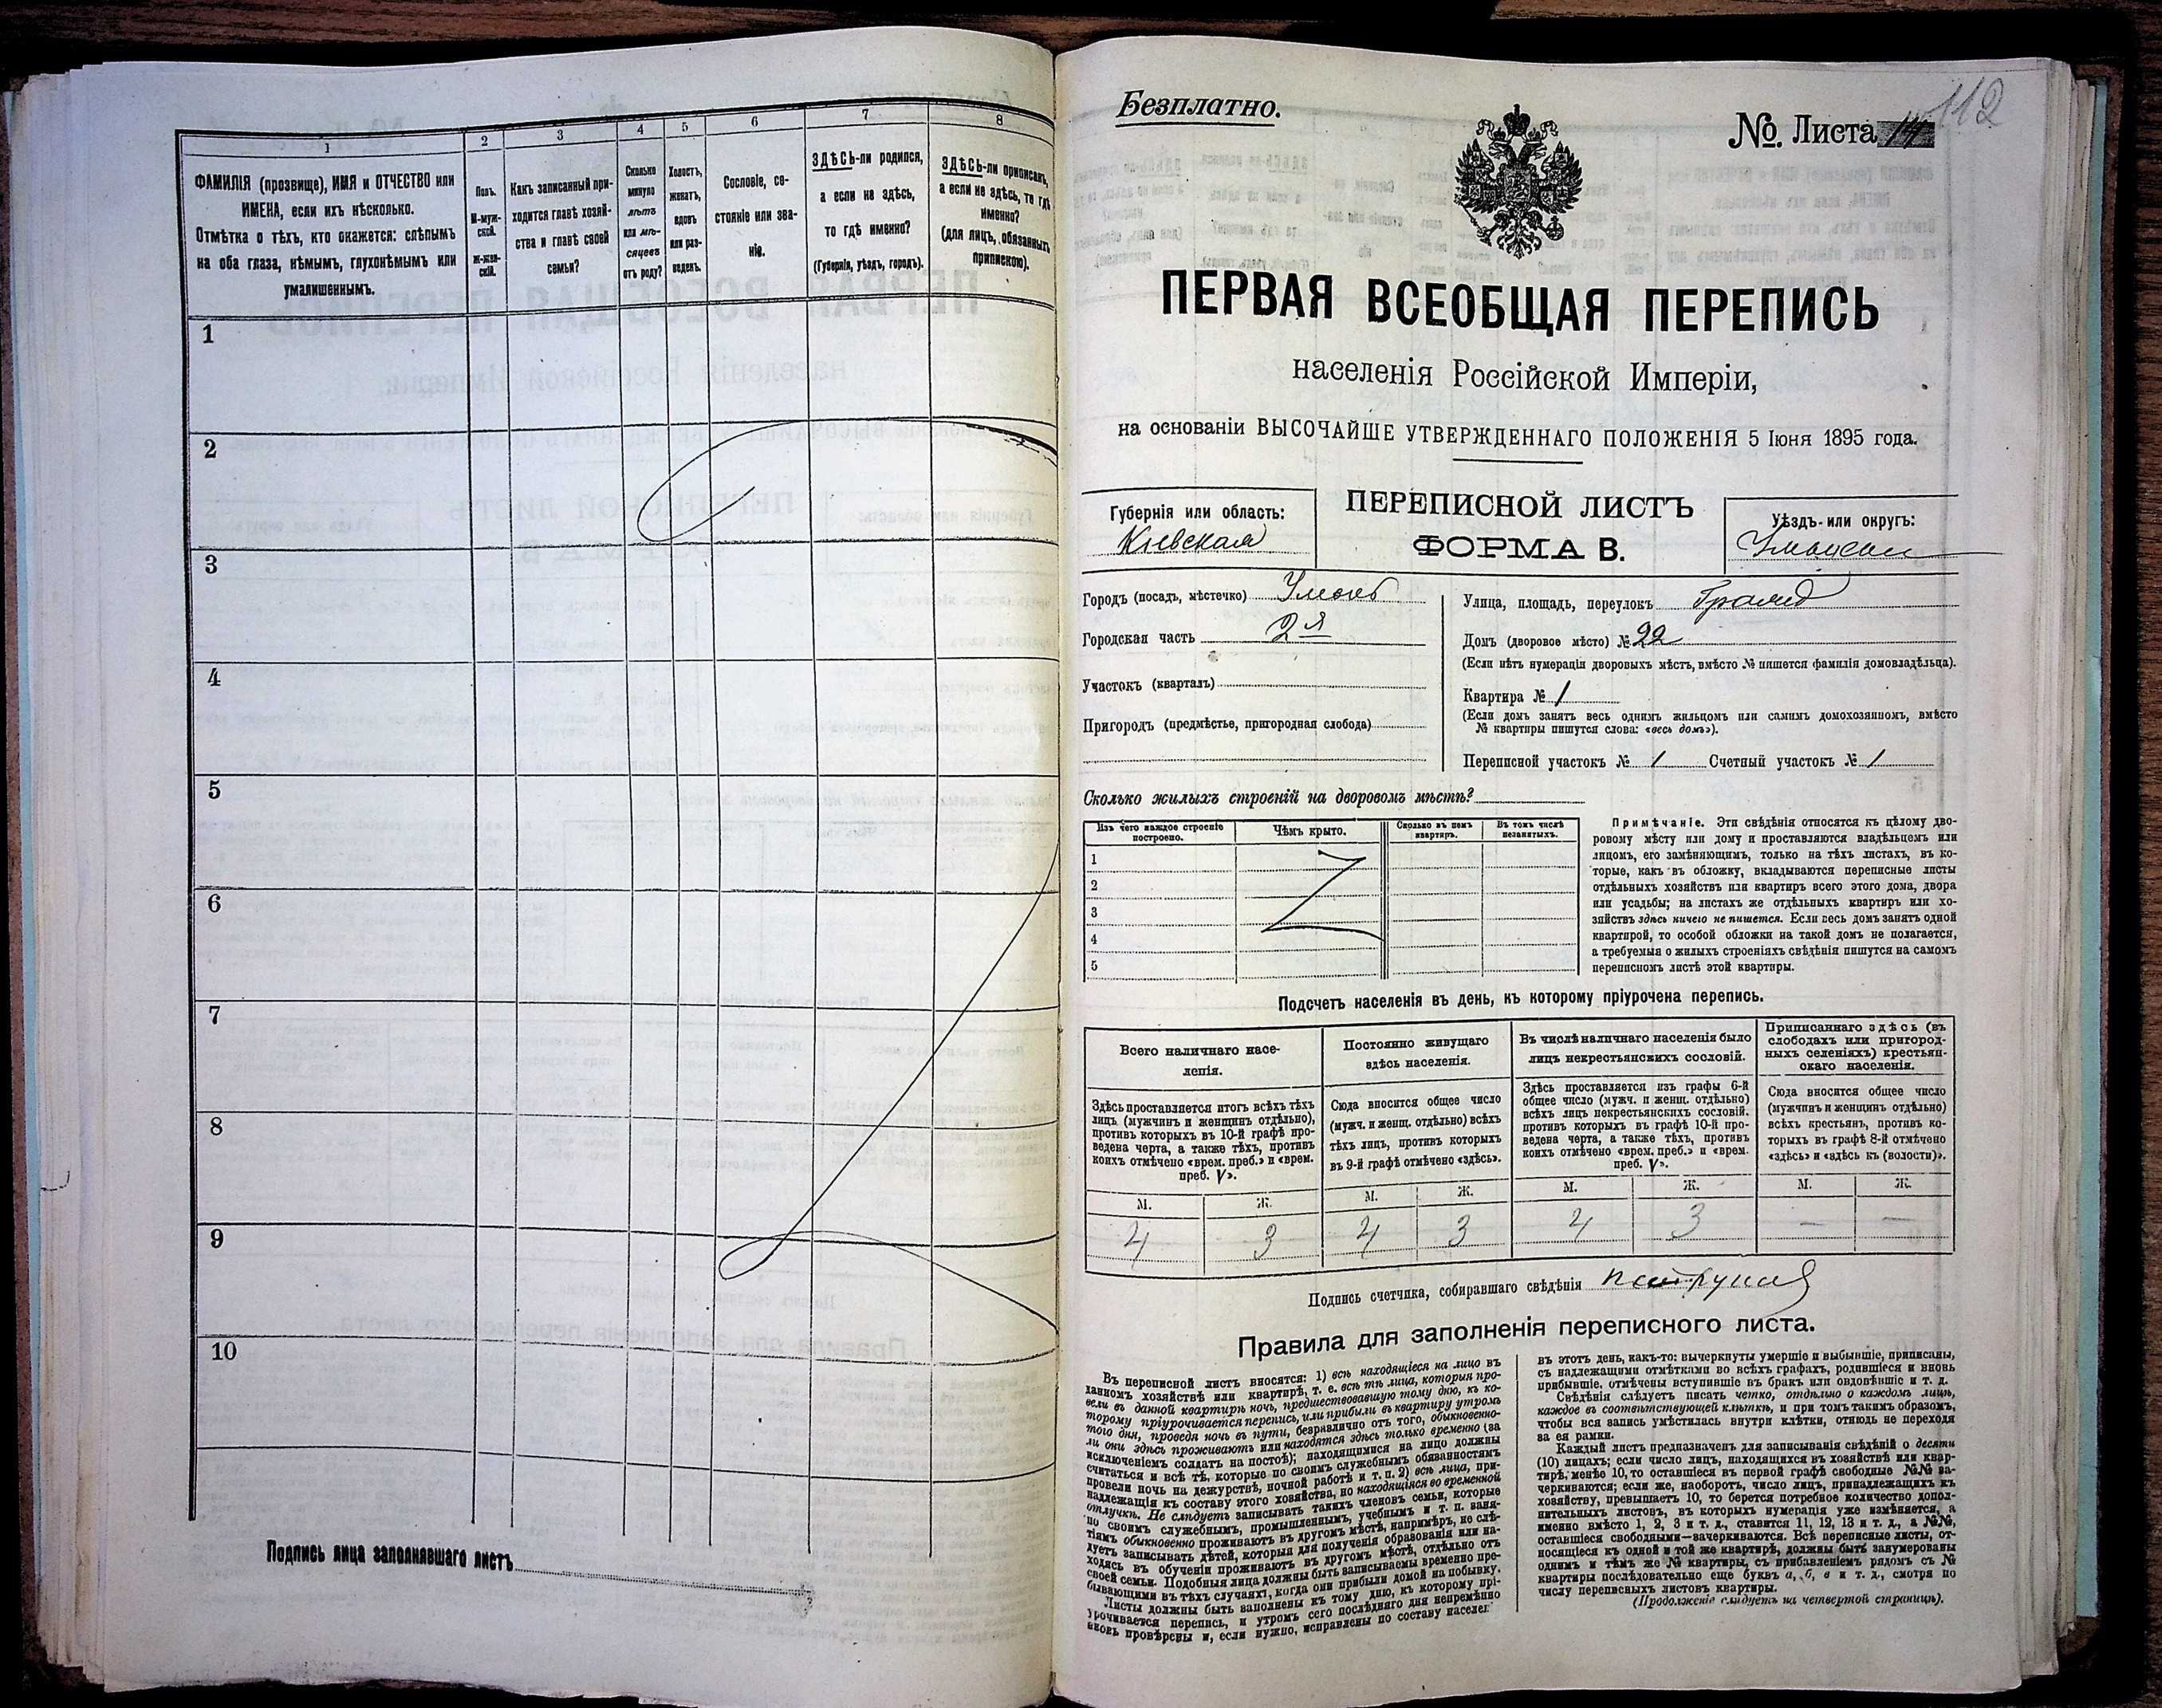 1
2
3
4
5
6
7
8
ФАМИЛІЯ (прозвище), ИМЯ и ОТЧЕСТВО или
ИМЕНА, если ихъ нѣсколько.
Отмѣтка о тѣхъ, кто окажется: слѣпымъ
на оба глаза, нѣмымъ, глухонѣмымъ или
умалишеннымъ.
Полъ.
М-муж-
ской.
Ж-жен-
скій.
Какъ записанный при-
ходится главѣ хозяй-
ства и главѣ своей
семьи?
Сколько
минуло
лѣтъ
или мѣ-
сяцевъ
отъ роду?
Холостъ,
женатъ,
вдовъ
или раз-
веденъ.
Сословіе, со-
стояніе или зва-
ніе.
ЗДѢСЬ-ли родился,
а если не здѣсь,
то гдѣ именно?
(Губернія, уѣздъ, городъ).
ЗДѢСЬ-ли приписанъ,
а если не здѣсь, то гдѣ
именно?
(для лицъ, обязанныхъ
припискою).
1
2
3
4
5
6
7
8
9
10
Подпись лица заполнявшаго листъ
Безплатно.
№. Листа 14
112
ПЕРВАЯ ВСЕОБЩАЯ ПЕРЕПИСЬ
населенія Россійской Имперіи,
на основаніи ВЫСОЧАЙШЕ УТВЕРЖДЕННАГО ПОЛОЖЕНІЯ 5 Іюня 1895 года.
Губернія или область:
Кіевская
ПЕРЕПИСНОЙ ЛИСТЪ
ФОРМА В.
Уѣздъ или округъ:
Городъ (посадъ, мѣстечко) Умань
Городская часть 2я
Участокъ (кварталъ)
Пригородъ (предмѣстье, пригородная слобода)
Улица, площадь, переулокъ
Домъ (дворовое мѣсто) № 22
(Если нѣтъ нумераціи дворовыхъ мѣстъ, вмѣсто № пишется фамилія домовладѣльца).
Квартира № 1
(Если домъ занятъ весь однимъ жильцомъ или самимъ домохозяиномъ, вмѣсто
№ квартиры пишутся слова: «весь домъ»).
Переписной участокъ № 1 Счетный участокъ № 1
Сколько жилыхъ строеній на дворовомъ мѣстѣ?
Изъ чего каждое строеніе
построено.
Чѣмъ крыто.
Сколько въ немъ
квартиръ.
Въ томъ числѣ
незанятыхъ.
1
2
3
4
5
Примѣчаніе. Эти свѣдѣнія относятся къ цѣлому дво-
ровому мѣсту или дому и проставляются владѣльцемъ или
лицомъ, его замѣняющимъ, только на тѣхъ листахъ, въ ко-
торые, какъ въ обложку, вкладываются переписные листы
отдѣльныхъ хозяйствъ или квартиръ всего этого дома, двора
или усадьбы; на листахъ же отдѣльныхъ квартиръ или хо-
зяйствъ здѣсь ничего не пишется. Если весь домъ занятъ одной
квартирой, то особой обложки на такой домъ не полагается,
а требуемыя о жилыхъ строеніяхъ свѣдѣнія пишутся на самомъ
переписномъ листѣ этой квартиры.
Подсчетъ населенія въ день, къ которому пріурочена перепись.
Всего наличнаго насе-
ленія.
Здѣсь проставляется итогъ всѣхъ тѣхъ
лицъ (мужчинъ и женщинъ отдѣльно),
противъ которыхъ въ 10-й графѣ про-
ведена черта, а также тѣхъ, противъ
коихъ отмѣчено «врем. преб.» и «врем.
преб. V».
М. Ж.
4 3
Постоянно живущаго
здѣсь населенія.
Сюда вносится общее число
(мужч. и женщ. отдѣльно) всѣхъ
тѣхъ лицъ, противъ которыхъ
въ 9-й графѣ отмѣчено «здѣсь».
М. Ж.
4 3
Въ числѣ наличнаго населенія было
лицъ некрестьянскихъ сословій.
Здѣсь проставляется изъ графы 6-й
общее число (мужч. и женщ. отдѣльно)
всѣхъ лицъ некрестьянскихъ сословій,
противъ которыхъ въ графѣ 10-й про-
ведена черта, а также тѣхъ, противъ
коихъ отмѣчено «врем. преб.» и «врем.
преб. V».
М. Ж.
4 3
Приписаннаго здѣсь (въ
слободахъ или пригород-
ныхъ селеніяхъ) крестьян-
скаго населенія.
Сюда вносится общее число
(мужчинъ и женщинъ отдѣльно)
всѣхъ крестьянъ, противъ ко-
торыхъ въ графѣ 8-й отмѣчено
«здѣсь» и «здѣсь къ (волости)».
М. Ж.
— —
Подпись счетчика, собиравшаго свѣдѣнія
Правила для заполненія переписного листа.
Въ переписной листъ вносятся: 1) всѣ находящіеся на лицо въ
данномъ хозяйствѣ или квартирѣ, т. е. всѣ тѣ лица, которыя про-
вели въ данной квартирѣ ночь, предшествовавшую тому дню, къ ко-
торому пріурочивается перепись, или прибыли въ квартиру утромъ
того дня, проведя ночь въ пути, безразлично отъ того, обыкновенно-
ли они здѣсь проживаютъ или находятся здѣсь только временно (за
исключеніемъ солдатъ на постоѣ); находящимися на лицо должны
считаться и всѣ тѣ, которые по своимъ служебнымъ обязанностямъ
провели ночь на дежурствѣ, ночной работѣ и т. п. 2) всѣ лица, при-
надлежащія къ составу этого хозяйства, но находящіяся во временной
отлучкѣ. Не слѣдуетъ записывать такихъ членовъ семьи, которые
по своимъ служебнымъ, промышленнымъ, учебнымъ и т. п. заня-
тіямъ обыкновенно проживаютъ въ другомъ мѣстѣ, напримѣръ, не слѣ-
дуетъ записывать дѣтей, которыя для полученія образованія или на-
ходясь въ обученіи проживаютъ въ другомъ мѣстѣ, отдѣльно отъ
своей семьи. Подобныя лица должны быть записываемы временно пре-
бывающими въ тѣхъ случаяхъ, когда они прибыли домой на побывку.
Листы должны быть заполнены къ тому дню, къ которому прі-
урочивается перепись, и утромъ сего послѣдняго дня непремѣнно
вновь провѣрены и, если нужно, исправлены по составу населе
въ этотъ день, какъ-то: вычеркнуты умершіе и выбывшіе, приписаны,
съ надлежащими отмѣтками во всѣхъ графахъ, родившіеся и вновь
прибывшіе, отмѣчены вступившіе въ бракъ или овдовѣвшіе и т. д.
Свѣдѣнія слѣдуетъ писать четко, отдѣльно о каждомъ лицѣ,
каждое въ соотвѣтствующей клѣткѣ, и при томъ такимъ образомъ,
чтобы вся запись умѣстилась внутри клѣтки, отнюдь не переходя
за ея рамки.
Каждый листъ предназначенъ для записыванія свѣдѣній о десяти
(10) лицахъ; если число лицъ, находящихся въ хозяйствѣ или квар-
тирѣ, менѣе 10, то оставшіеся въ первой графѣ свободные №№ за-
черкиваются; если же, наоборотъ, число лицъ, принадлежащихъ къ
хозяйству, превышаетъ 10, то берется потребное количество допол-
нительныхъ листовъ, въ которыхъ нумерація уже измѣняется, а
именно вмѣсто 1, 2, 3 и т. д., ставится 11, 12, 13 и т. д., а №№,
оставшіеся свободными—зачеркиваются. Всѣ переписные листы, от-
носящіеся къ одной и той же квартирѣ, должны быть занумерованы
однимъ и тѣмъ же № квартиры, съ прибавленіемъ рядомъ съ №
квартиры послѣдовательно еще буквъ а, б, в и т. д., смотря по
числу переписныхъ листовъ квартиры.
(Продолженіе слѣдуетъ на четвертой страницѣ).